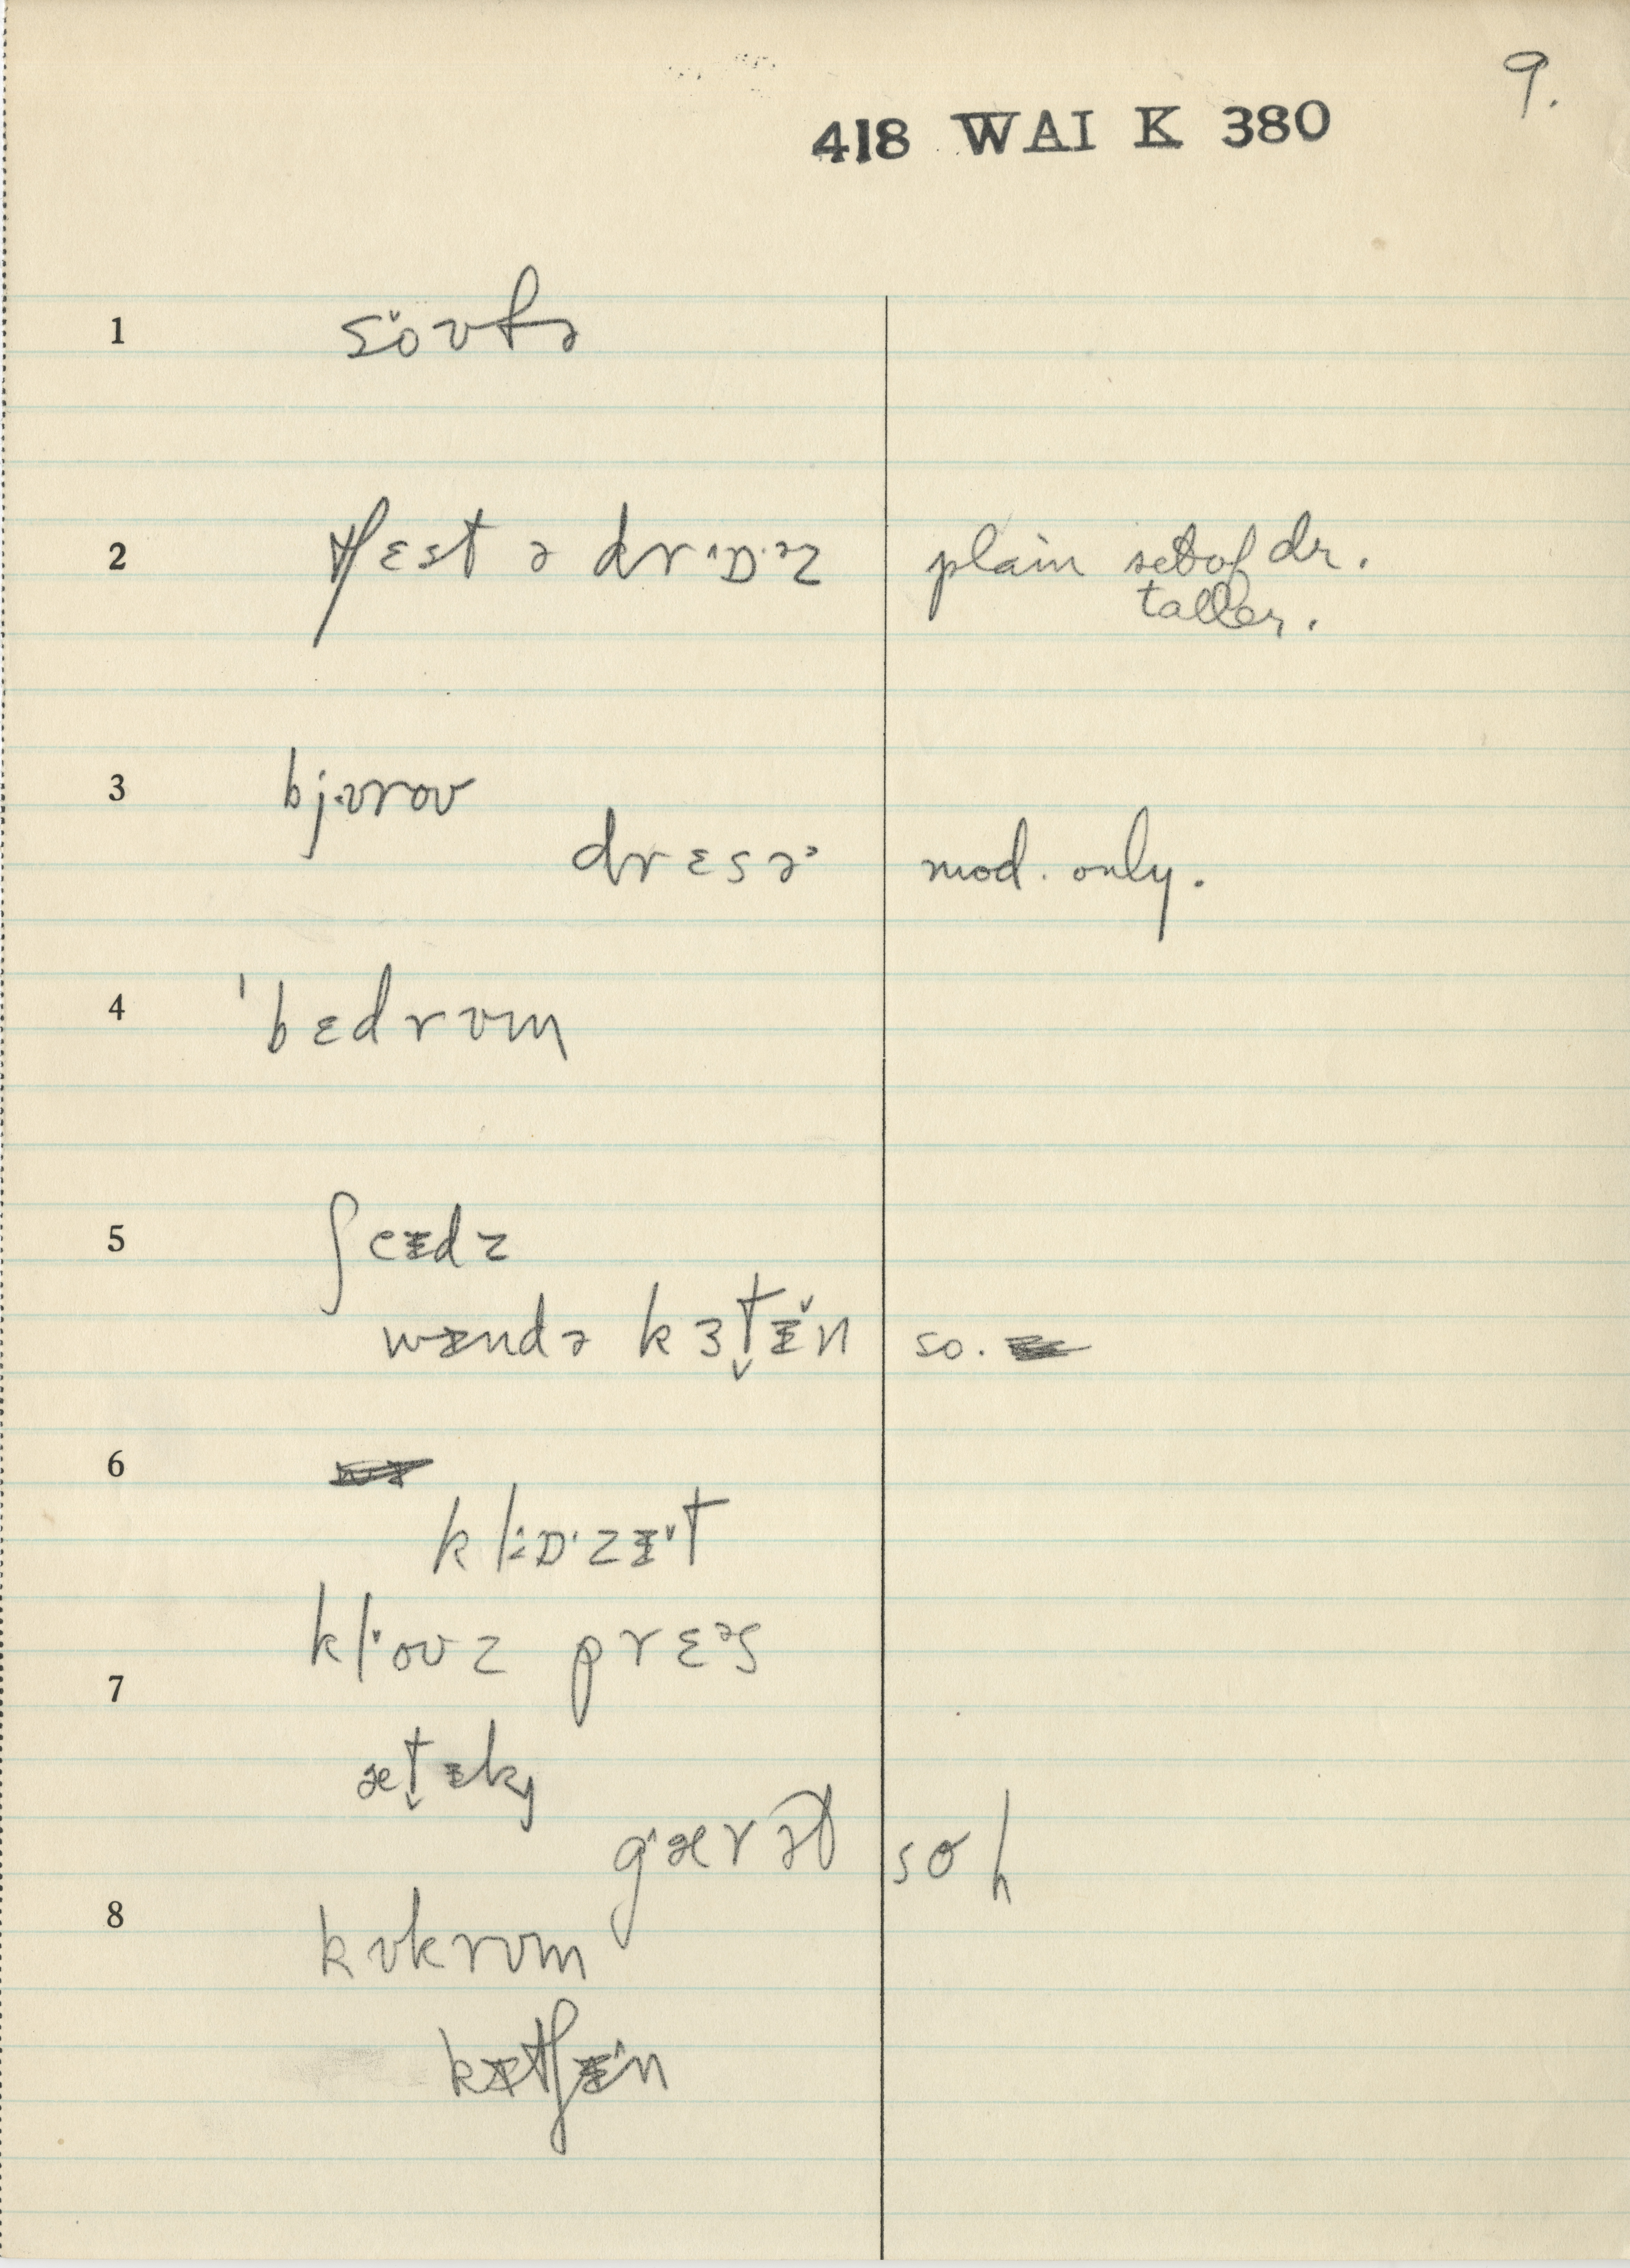 9.
418 WAI K 380
1 soʊfə
2 tʃɛst ə drɒəz plain set of dr.
taller.
3 bjʊroʊ
drɛsə mod. only.
4 ˈbɛdrʊm
5 ʃeɪdz
wɪndə kɜt̬ɪ̆n so.
6
klɒzɪt
kloʊz prɛəs
7
æt̬ɪk
gærət so h
8
kʊkrʊm
kɪtʃɪn